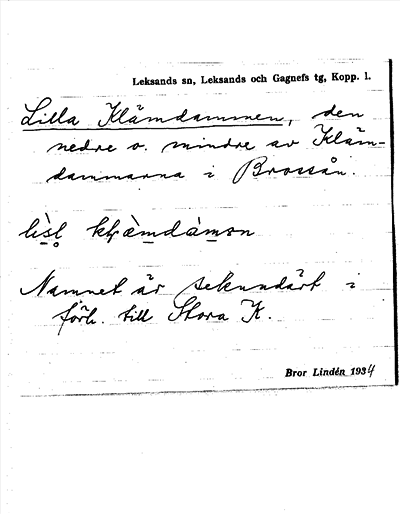 Leksands sn, Leksands och Gagnefs tg, Kopp. l.
Lilla Klämdammen, den
nedre o. mindre av Kläm-
dammarna i Brossån.
Namnet är sekundärt i
förh. till Stora K.
Bror Lindén 1934